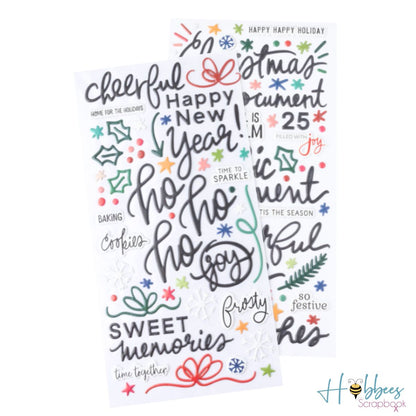 cheerful
HOME FOR THE HOLIDAYS
Happy
New
Year!
TIME TO
SPARKLE
ho
ho
ho
BAKING
Cookies
joy
frosty
SWEET
memories
time together
HAPPY HAPPY HOLIDAY
stmas
ocument
25
FILLED WITH
joy
ment
'TIS THE SEASON
rful
so
festive
hes
Hobbees
Scrapbook